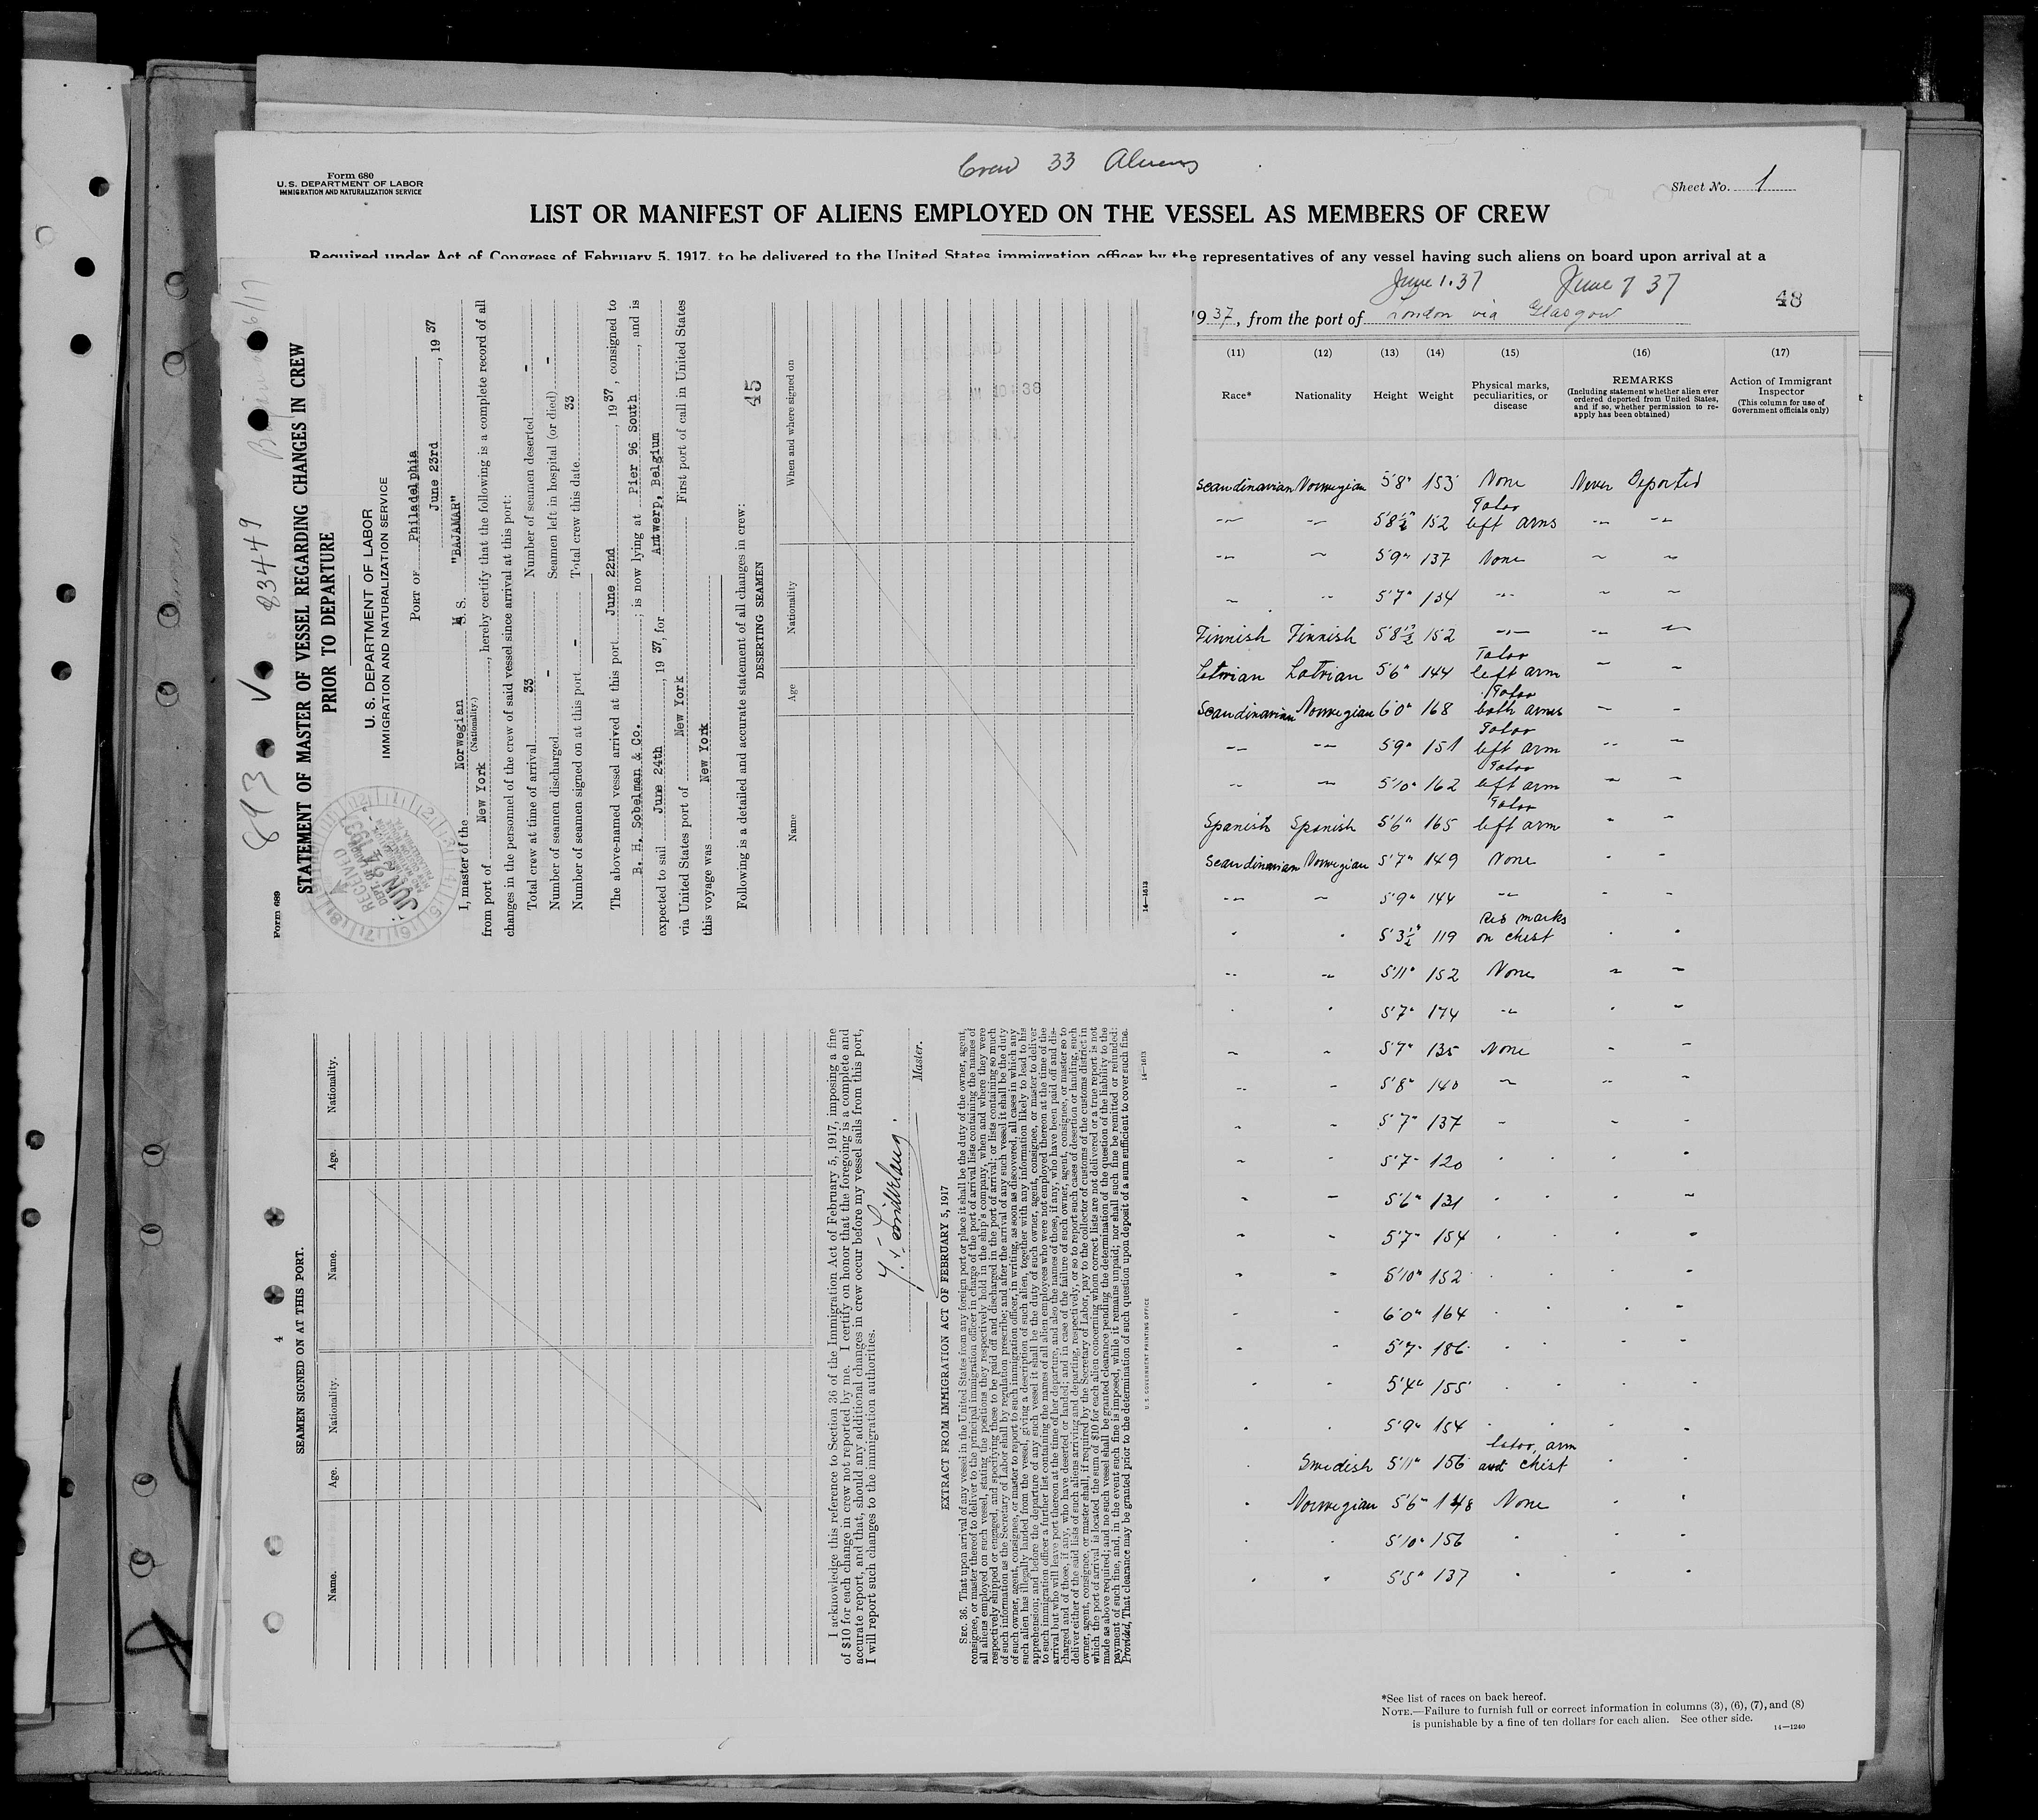 Crew 33 Aliens
Form 680
U. S. DEPARTMENT OF LABOR
IMMIGRATION AND NATURALIZATION SERVICE
Sheet No. 1
LIST OR MANIFEST OF ALIENS EMPLOYED ON THE VESSEL AS MEMBERS OF CREW
Required under Act of Congress of February 5, 1917, to be delivered to the United States immigration officer by the representatives of any vessel having such aliens on board upon arrival at a
June 1. 37 June 7 37
48
1937, from the port of London via Glasgow
(11) (12) (13) (14) (15) (16) (17)
Race* Nationality Height Weight Physical marks, peculiarities, or disease REMARKS (Including statement whether alien ever ordered deported from United States, and if so, whether permission to re-apply has been obtained) Action of Immigrant Inspector (This column for use of Government officials only)
Scandinavian Norwegian 5'8" 153 None Never Deported
-"- -"- 5'8½" 152 Tatoo left arms -"- -"-
-"- -"- 5'9" 137 None " "
" " 5'7" 134 -"- " "
Finnish Finnish 5'8½" 152 -"- -"- -"-
Latvian Latvian 5'6" 144 Tatoo left arm " "
Scandinavian Norwegian 6'0" 168 Tatoo both arms " "
-"- -"- 5'9" 151 Tatoo left arm " "
" " 5'10" 162 Tatoo left arm " "
Spanish Spanish 5'6" 165 Tatoo left arm " "
Scandinavian Norwegian 5'7" 149 None " "
-"- " 5'9" 144 -"- " "
" " 5'3½" 119 Red marks on chest " "
" " 5'11" 152 None " "
" " 5'7" 174 -"- " "
" " 5'7" 135 None " "
" " 5'8" 140 " " "
" " 5'7" 137 " " "
" " 5'7" 120 " " "
" " 5'6" 131 " " "
" " 5'7" 154 " " "
" " 5'10" 152 " " "
" " 6'0" 164 " " "
" " 5'7" 186 " " "
" " 5'4" 155 " " "
" " 5'9" 154 " " "
" Swedish 5'11" 156 tatoo, arm and chest " "
" Norwegian 5'6" 148 None " "
" " 5'10" 156 " " "
" " 5'5" 137 " " "
*See list of races on back hereof.
NOTE.—Failure to furnish full or correct information in columns (3), (6), (7), and (8)
is punishable by a fine of ten dollars for each alien. See other side.
14—1240
893 V 83449
6/17
Form 689
STATEMENT OF MASTER OF VESSEL REGARDING CHANGES IN CREW
PRIOR TO DEPARTURE
U. S. DEPARTMENT OF LABOR
IMMIGRATION AND NATURALIZATION SERVICE
RECEIVED
JUN 24
PORT OF Philadelphia
June 23rd, 1937
I, master of the Norwegian M. S. "BAJAMAR"
(Nationality.)
from port of New York, hereby certify that the following is a complete record of all
changes in the personnel of the crew of said vessel since arrival at this port:
Total crew at time of arrival 33 Number of seamen deserted -
Number of seamen discharged - Seamen left in hospital (or died) -
Number of seamen signed on at this port - Total crew this date 33
The above-named vessel arrived at this port June 22nd, 1937, consigned to
B. H. Sobelman & Co.; is now lying at Pier 96 South, and is
expected to sail June 24th, 1937, for Antwerp, Belgium
via United States port of New York First port of call in United States
this voyage was New York
Following is a detailed and accurate statement of all changes in crew:
45
DESERTING SEAMEN
Name Age Nationality When and where signed on
14—1613
4
SEAMEN SIGNED ON AT THIS PORT.
Name. Age. Nationality. Name. Age. Nationality.
I acknowledge this reference to Section 36 of the Immigration Act of February 5, 1917, imposing a fine
of $10 for each change in crew not reported by me. I certify on honor that the foregoing is a complete and
accurate report, and that, should any additional changes in crew occur before my vessel sails from this port,
I will report such changes to the immigration authorities.
Master.
EXTRACT FROM IMMIGRATION ACT OF FEBRUARY 5, 1917
SEC. 36. That upon arrival of any vessel in the United States from any foreign port or place it shall be the duty of the owner, agent,
consignee, or master thereof to deliver to the principal immigration officer in charge of the port of arrival lists containing the names of
all aliens employed on such vessel, stating the positions they respectively hold in the ship's company, when and where they were
respectively shipped or engaged, and specifying those to be paid off and discharged in the port of arrival; or lists containing so much
of such information as the Secretary of Labor shall by regulation prescribe; and after the arrival of any such vessel it shall be the duty
of such owner, agent, consignee, or master to report to such immigration officer, in writing, as soon as discovered, all cases in which any
such alien has illegally landed from the vessel, giving a description of such alien, together with any information likely to lead to his
apprehension; and before the departure of any such vessel it shall be the duty of such owner, agent, consignee, or master to deliver
to such immigration officer a further list containing the names of all alien employees who were not employed thereon at the time of the
arrival but who will leave port thereon at the time of her departure, and also the names of those, if any, who have been paid off and dis-
charged and of those, if any, who have deserted or landed; and in case of the failure of such owner, agent, consignee, or master so to
deliver either of the said lists of such aliens arriving and departing, respectively, or so to report such cases of desertion or landing, such
owner, agent, consignee, or master shall, if required by the Secretary of Labor, pay to the collector of customs of the customs district in
which the port of arrival is located the sum of $10 for each alien concerning whom correct lists are not delivered or a true report is not
made as above required; and no such vessel shall be granted clearance pending the determination of the question of the liability to the
payment of such fine, and, in the event such fine is imposed, while it remains unpaid; nor shall such fine be remitted or refunded:
Provided, That clearance may be granted prior to the determination of such question upon deposit of a sum sufficient to cover such fine.
U. S. GOVERNMENT PRINTING OFFICE 14—1613